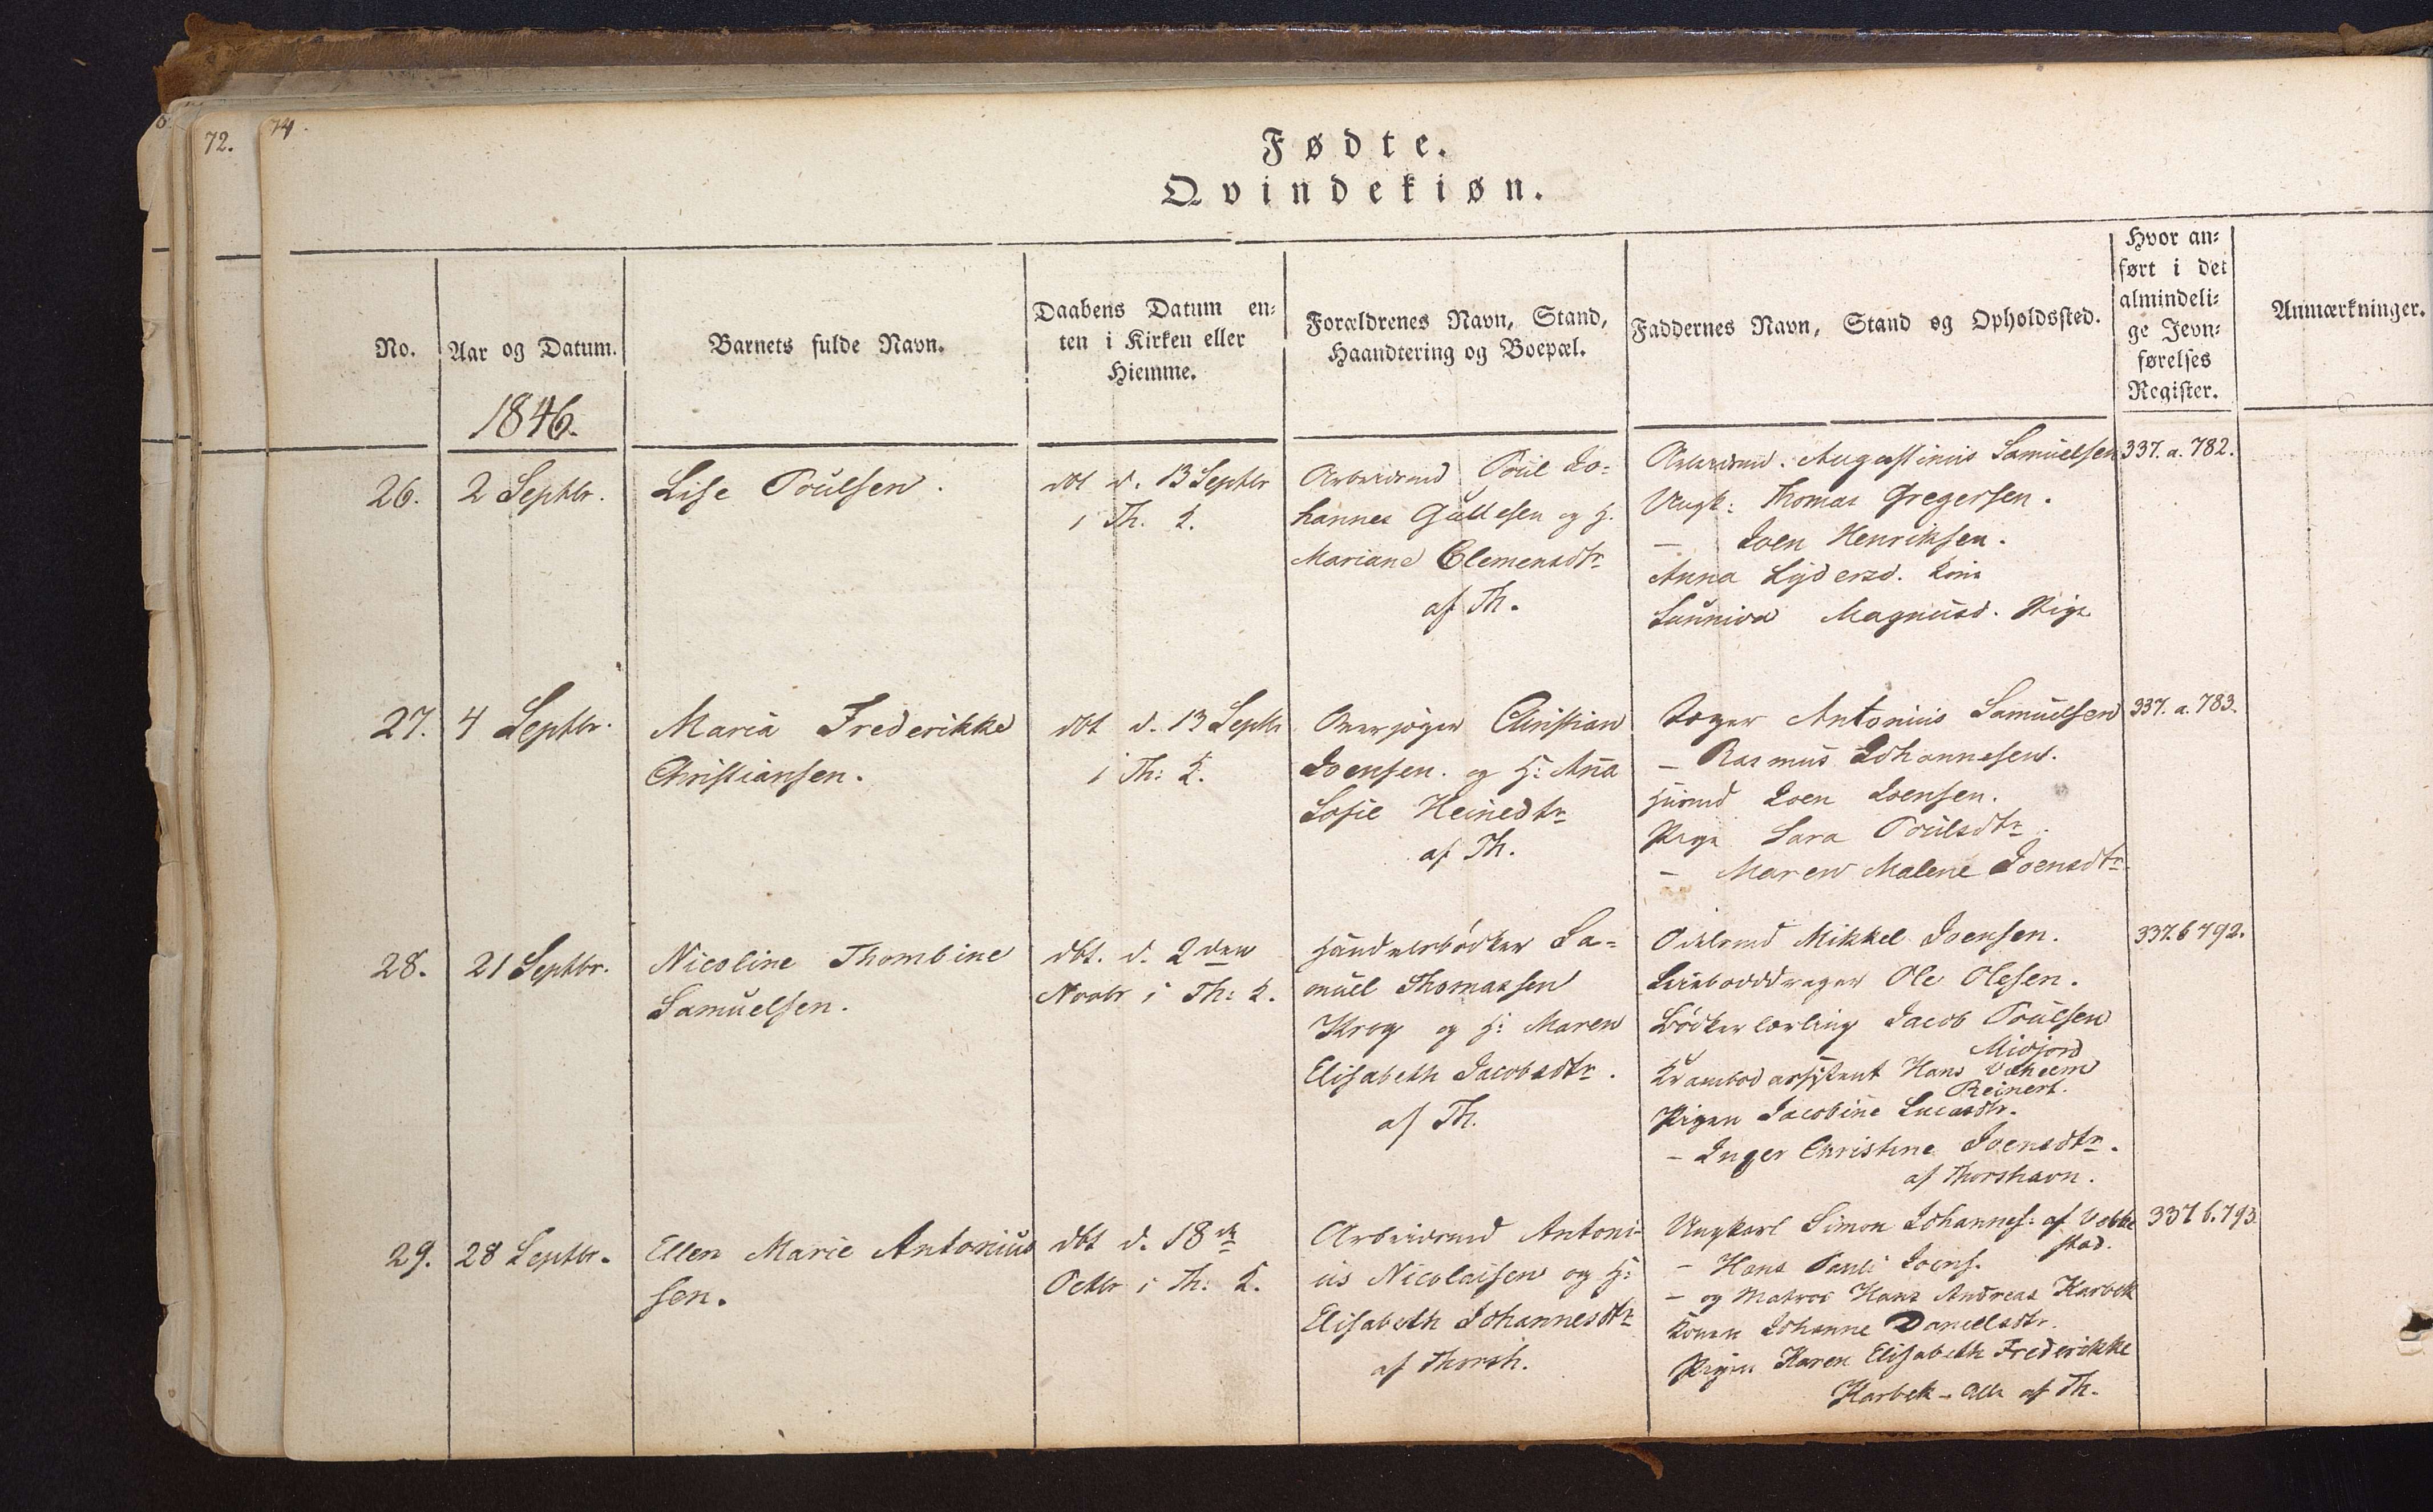 72.
74.
Fødte.
Qvindekiøn.
No.
Aar og Datum.
1846.
Barnets fulde Navn.
Daabens Datum en-
ten i Kirken eller
Hiemme.
Forældrenes Navn, Stand,
Haandtering og Boepæl.
Faddernes Navn, Stand og Opholdssted.
Hvor an-
ført i det
almindeli-
ge Jevn-
førelses
Register.
Anmærkninger.
26.
2 Septbr.
Lise Poulsen.
dbt d. 13 Septbr
i Th. K.
Arbeidsmd Poul Jo-
hannes Gullesen og H.
Mariane Clemensdtr
af Th.
Arbeidsmd. Augustinus Samuelsen
Ungk: Thomas Gregersen.
— Joen Henriksen.
Anna Lydersd. Kone
Sunniva Magnusd. Pige
337. a. 782.
27.
4 Septbr.
Maria Frederikke
Christiansen.
dbt d. 13 Septbr
i Th: K.
Overjæger Christian
Joensen. og H: Aña
Sofie Heinedtr
af Th.
Jæger Antonius Samuelsen
— Rasmus Johannesen.
Huusmd Joen Joensen.
Pige Sara Poulsdtr.
— Maren Malene Joensdtr
337. a. 783.
28.
21 Septbr.
Nicoline Thombine
Samuelsen.
dbt. d. 2den
Novbr i Th: K.
Handelsbødker Sa-
muel Thomassen
Krog og H: Maren
Elisabeth Jacobsdtr.
af Th.
Odelsmd Mikkel Joensen.
Ole Olesen.
Bødkerlærling Jacob Poulsen
Midjord
Krambodassistent Hans Vilhelm
Reinert.
Pigen Jacobine Lucasdtr.
— Inger Christine Joensdtr.
af Thorshavn.
337. b 792.
29.
28 Septbr.
Ellen Marie Antonius
sen.
dbt d. 18de
Octbr i Th: K.
Arbeidsmd Antoni-
us Nicolaisen og H:
Elisabeth Johannesdtr
af Thorsh.
Ungkarl Simon Johannes: af Vebbe
stad.
— Hans Pauli Joens.
— og Matros Hans Andreas Karbek
Konen Johanne Danielsdtr.
Pigen Karen Elisabeth Frederikke
Karbek - Alle af Th.
337 b. 793.